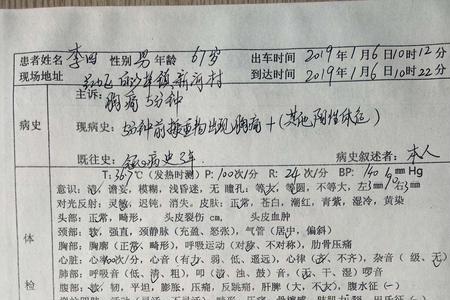 患者姓名 李田 性别 男 年龄 67岁 出车时间 2019年1月6日10时12分
现场地址 镇新河村 到达时间 2019年1月6日10时22分
主诉: 胸痛5分钟
病史 现病史: 5分钟前搬重物出现胸痛 (其他阳性体危)
既往史: 冠心病史3年. 病史叙述者: 本人
T: 36.5℃(发热时测) P: 100次/分 R: 24次/分 BP: 140 mmHg
意识: 清, 谵妄, 模糊, 浅昏迷, 无 瞳孔: 等大, 等圆, 不等大, 左3mm 右3
对光反射: 灵敏, 迟钝, 消失。皮肤: 正常, 苍白, 潮红, 青紫, 湿冷, 黄染
头部: 正常, 畸形, 头皮裂伤 cm, 头皮血肿
体 颈部: 软, 强直, 颈静脉(充盈、怒张), 气管(居中, 偏斜)
胸部: 胸廓(正常, 畸形), 呼吸运动(对称、不对称), 肋骨压痛
心脏: 心率 次/分, 心音(有力、弱、低、遥远), 心律(齐、不齐), 杂音(级、无)
肺部: 呼吸音(低, 清, 粗), 叩(浊、浊、鼓)音, 干、湿)啰音
检 腹部: 软, 韧, 平坦, 膨胀, 压痛, 反跳痛, 肝脾(大, 不大), 腹水征(-)